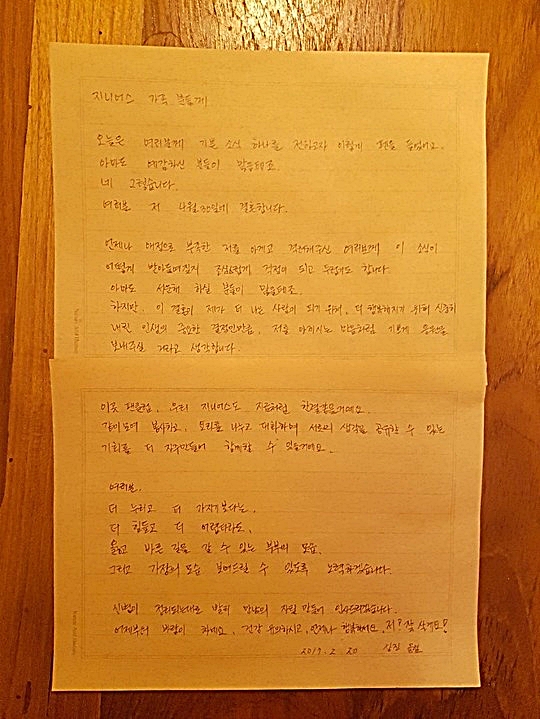 지니어스 가족 분들께
오늘은 여러분께 기쁜 소식 하나를 전하고자 이렇게 펜을 들었어요.
아마도 예감하신 분들이 많을테죠.
네 그렇습니다.
여러분 저 4월 30일에 결혼합니다.
언제나 애정으로 부족한 저를 아끼고 격려해주신 여러분께 이 소식이
어떻게 받아들여질지 조심스럽게 걱정이 되고 두렵기도 합니다.
아마도 서운해 하실 분들이 많을테죠.
하지만, 이 결혼이 제가 더 나은 사람이 되기 위해, 더 행복해지기 위해 신중히
내린 인생의 중요한 결정인만큼, 저를 아끼시는 마음처럼 기쁘게 응원을
보내주실 거라고 생각합니다.
이곳 팬클럽, 우리 지니어스도 지금처럼 한결같을거예요.
같이 모여 봉사하고, 모리를 나누고 대화하며 서로의 생각을 공유할 수 있는
기회를 더 자주 만들어 함께할 수 있을거예요.
여러분.
더 누리고 더 가지기 보다는,
더 힘들고 더 어렵더라도,
옳고 바른 길을 갈 수 있는 부부의 모습,
그리고 가장의 모습 보여드릴 수 있도록 노력하겠습니다.
신변이 정리되는대로 빨리 만남의 자리 만들어 인사드리겠습니다.
어제부터 바람이 차네요, 건강 유의하시고, 언제나 행복하세요. 저? 잘 살게요!
2017. 2. 20